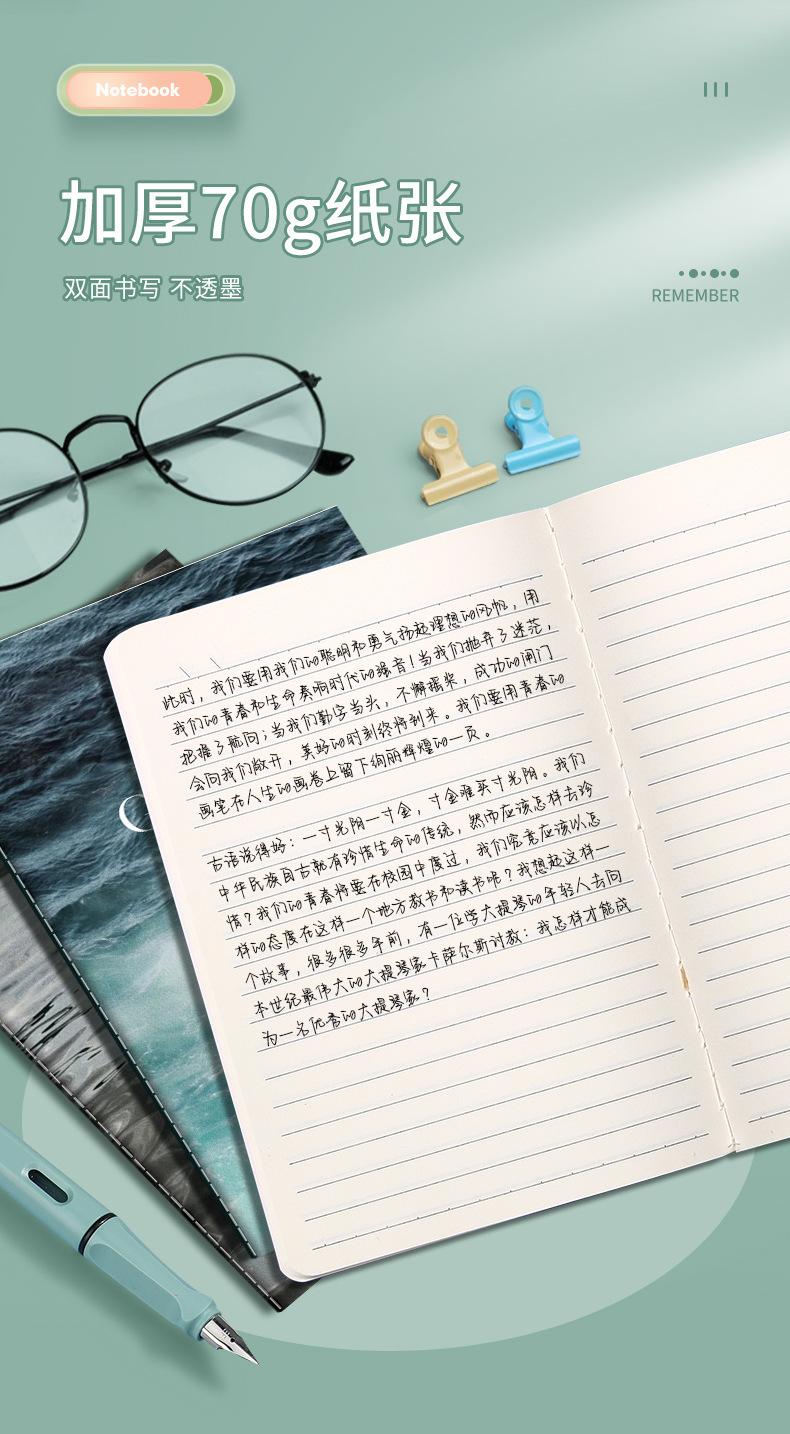 Notebook
加厚70g纸张
双面书写 不透墨
REMEMBER
此时，我们要用我们的聪明和勇气扬起理想的风帆，用
我们的青春和生命奏响时代的强音！当我们抛弃了迷茫，
把握了航向；当我们勤字当头，不懈摇桨，成功的闸门
会向我们敞开，美好的时刻终将到来。我们要用青春的
画笔在人生的画卷上留下绚丽辉煌的一页。
古语说得好：一寸光阴一寸金，寸金难买寸光阴。我们
中华民族自古就有珍惜生命的传统，然而应该怎样去珍
惜？我们的青春将要在校园中度过，我们究竟应该以怎
样的态度在这样一个地方教书和读书呢？我想起这样一
个故事，很多很多年前，有一位学大提琴的年轻人去向
本世纪最伟大的大提琴家卡萨尔斯讨教：我怎样才能成
为一名优秀的大提琴家？